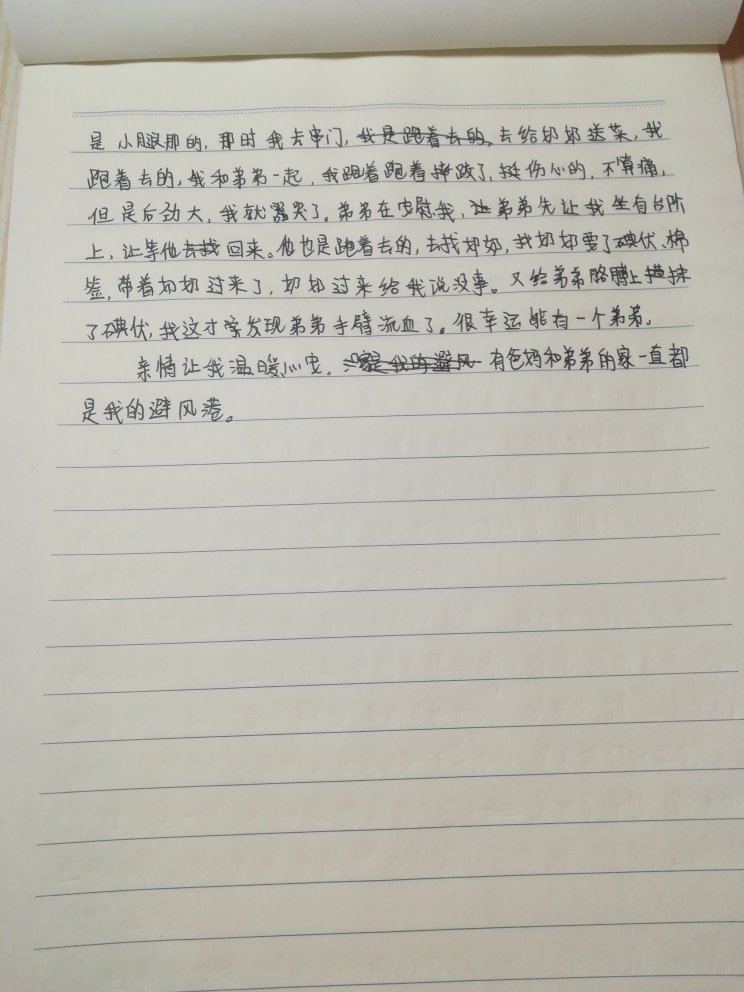 是小腿那的,那时我去串门,我是跑着去的,去给奶奶送菜,我
跑着去的,我和弟弟一起,我跑着跑着摔跤了,挺伤心的,不算痛,
但是后劲大,我就哭了。弟弟在安慰我,弟弟先让我坐有台阶
上,让等他去找回来。他也是跑着去的,去找奶奶,找奶奶要了碘伏、棉
签,带着奶奶过来了,奶奶过来给我说没事。又给弟弟胳膊上抹
了碘伏,我这才发现弟弟手臂流血了。很幸运能有一个弟弟。
亲情让我温暖心安,家是我的避风有爸妈和弟弟的家一直都
是我的避风港。